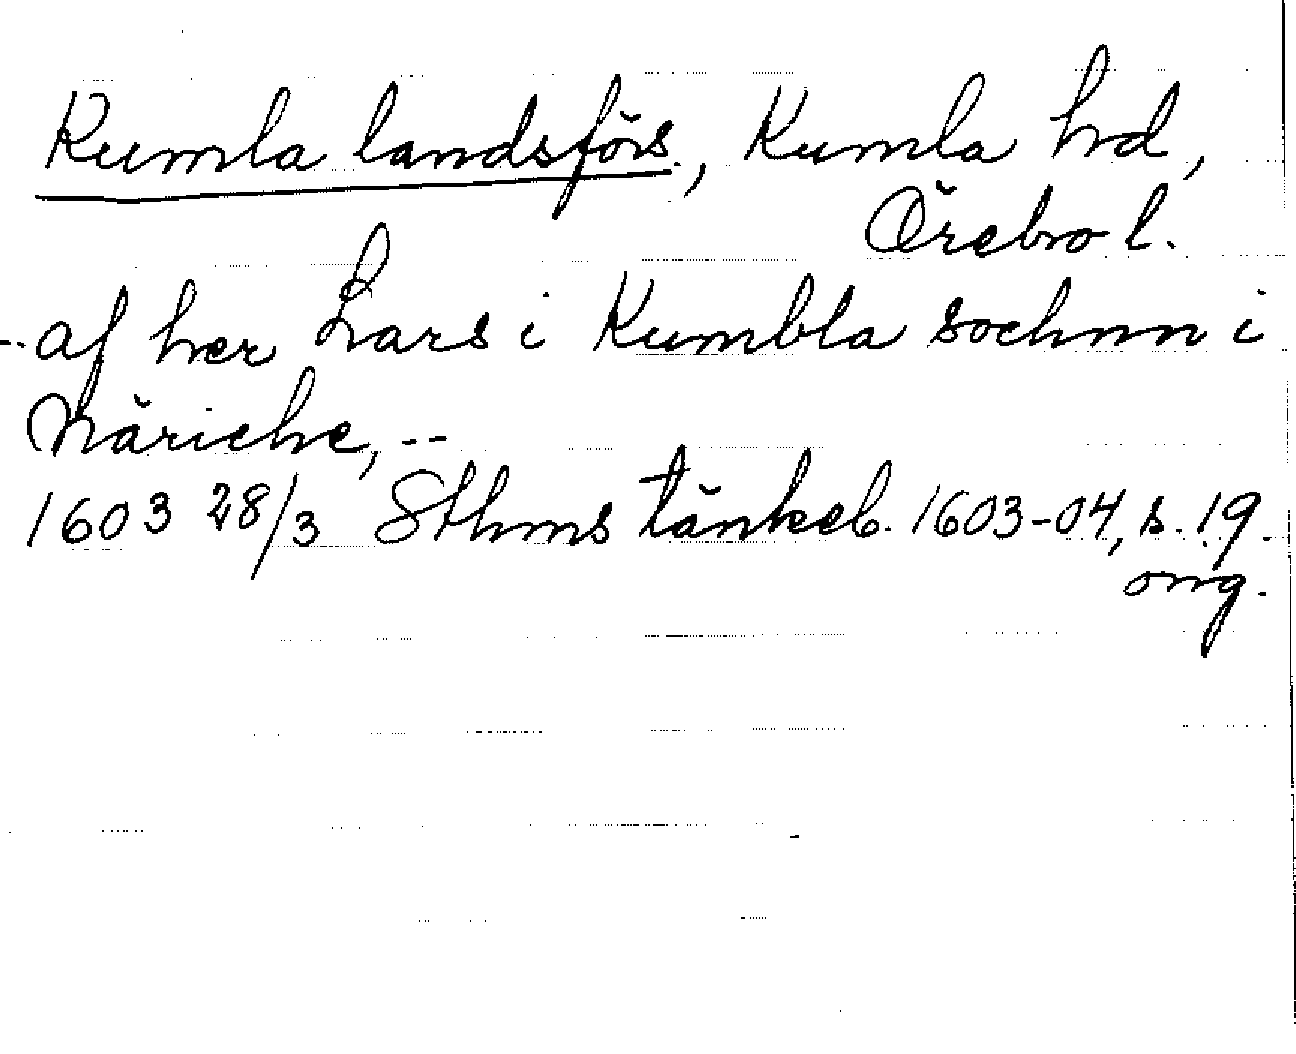 Kumla landsförs., Kumla hd,
Örebro l.
-- af her Lars i Kumbla sochnn i
Näriche, --
1603 28/3 Sthms tänkeb. 1603-04, s. 19.
orig.